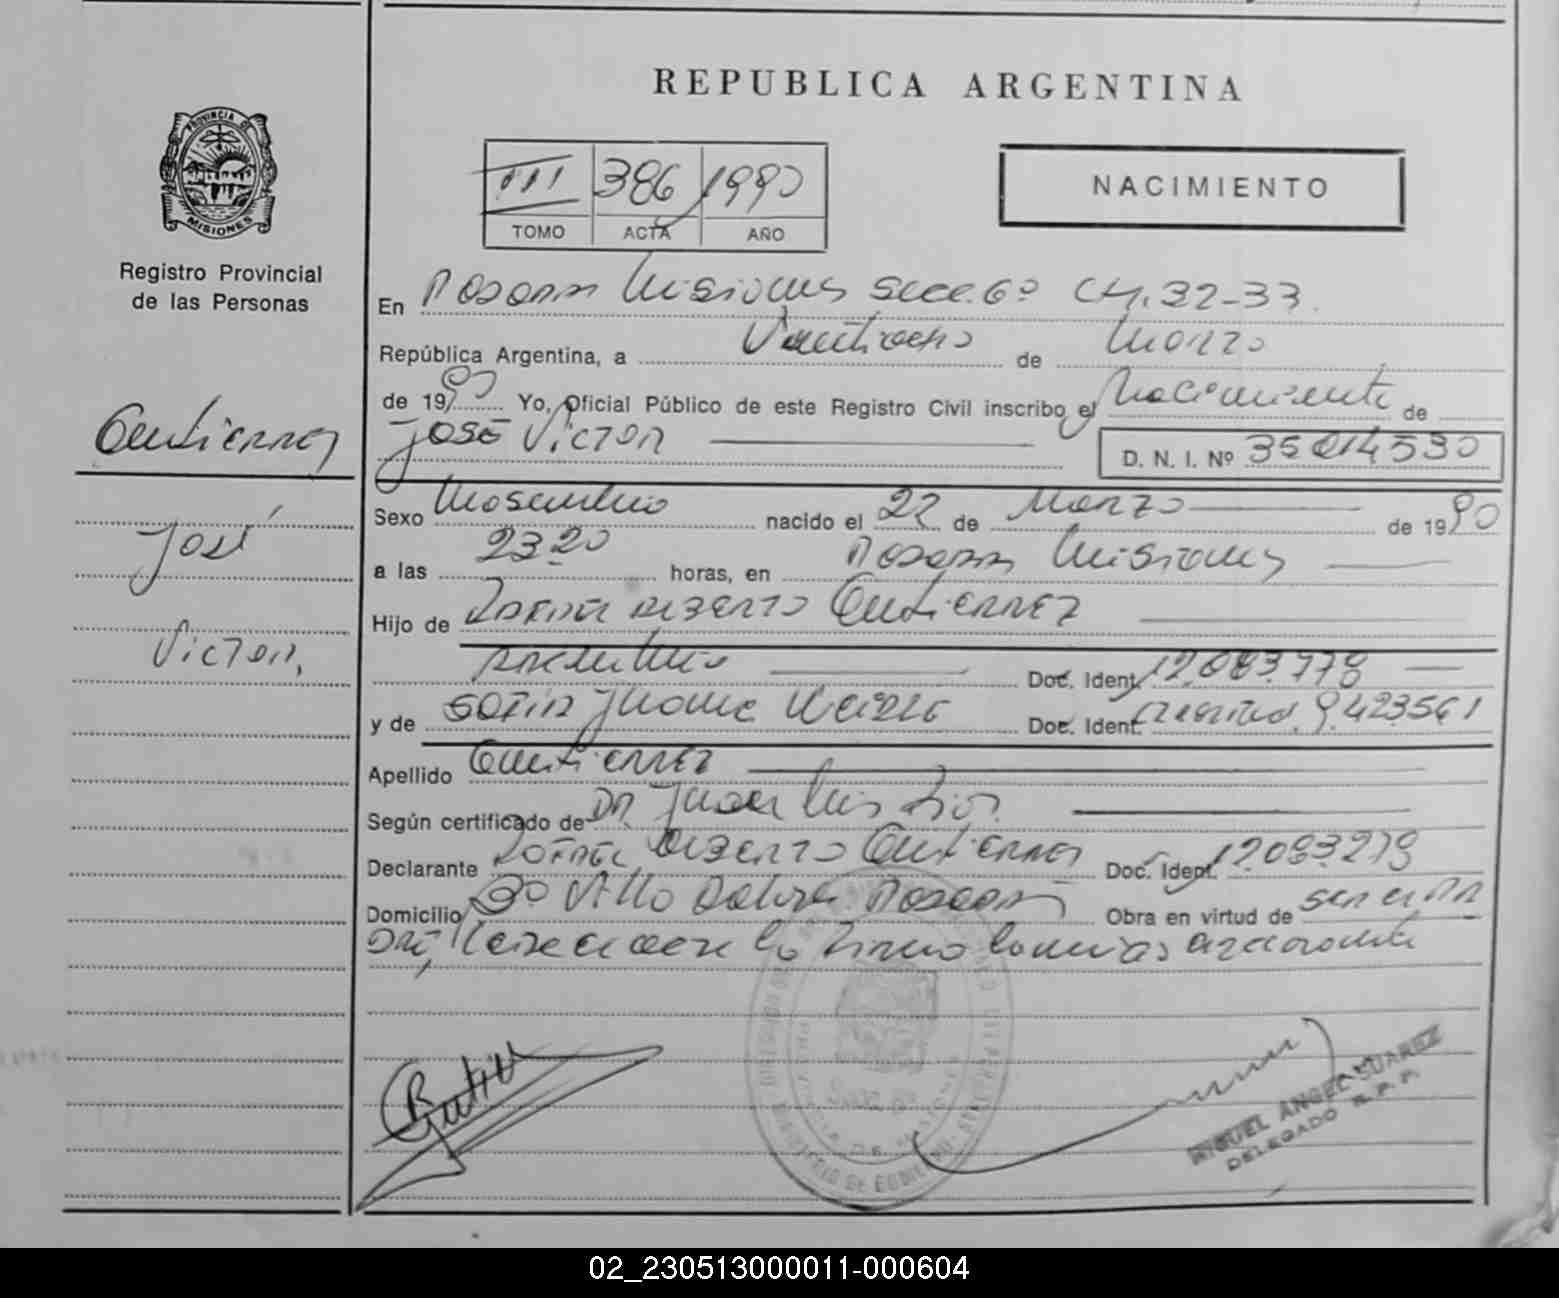 REPUBLICA ARGENTINA
PROVINCIA DE
MISIONES
Registro Provincial
de las Personas
III 386 1990
TOMO ACTA AÑO
NACIMIENTO
En Posadas Misiones Secc. 6º CH. 32-33.
República Argentina, a Veintiocho de Marzo
de 1990 Yo, Oficial Público de este Registro Civil inscribo el Nacimiento de
JOSÉ VICTOR
D. N. I. Nº
Gutierrez
José
Victor.
Sexo Masculino nacido el 22 de Marzo de 1990
a las 23.20 horas, en Posadas Misiones
Hijo de RAFAEL ALBERTO GUTIERREZ
Argentino Doc. Ident.
y de Doc. Ident. 9.423561
Apellido GUTIERREZ
Según certificado de DR. Juan Luis
Declarante RAFAEL ALBERTO GUTIERREZ Doc. Ident.
Domicilio Posadas Obra en virtud de ser el PA
DRE, la firma
MIGUEL ANGEL SUAREZ
DELEGADO R. P. P.
02_230513000011-000604